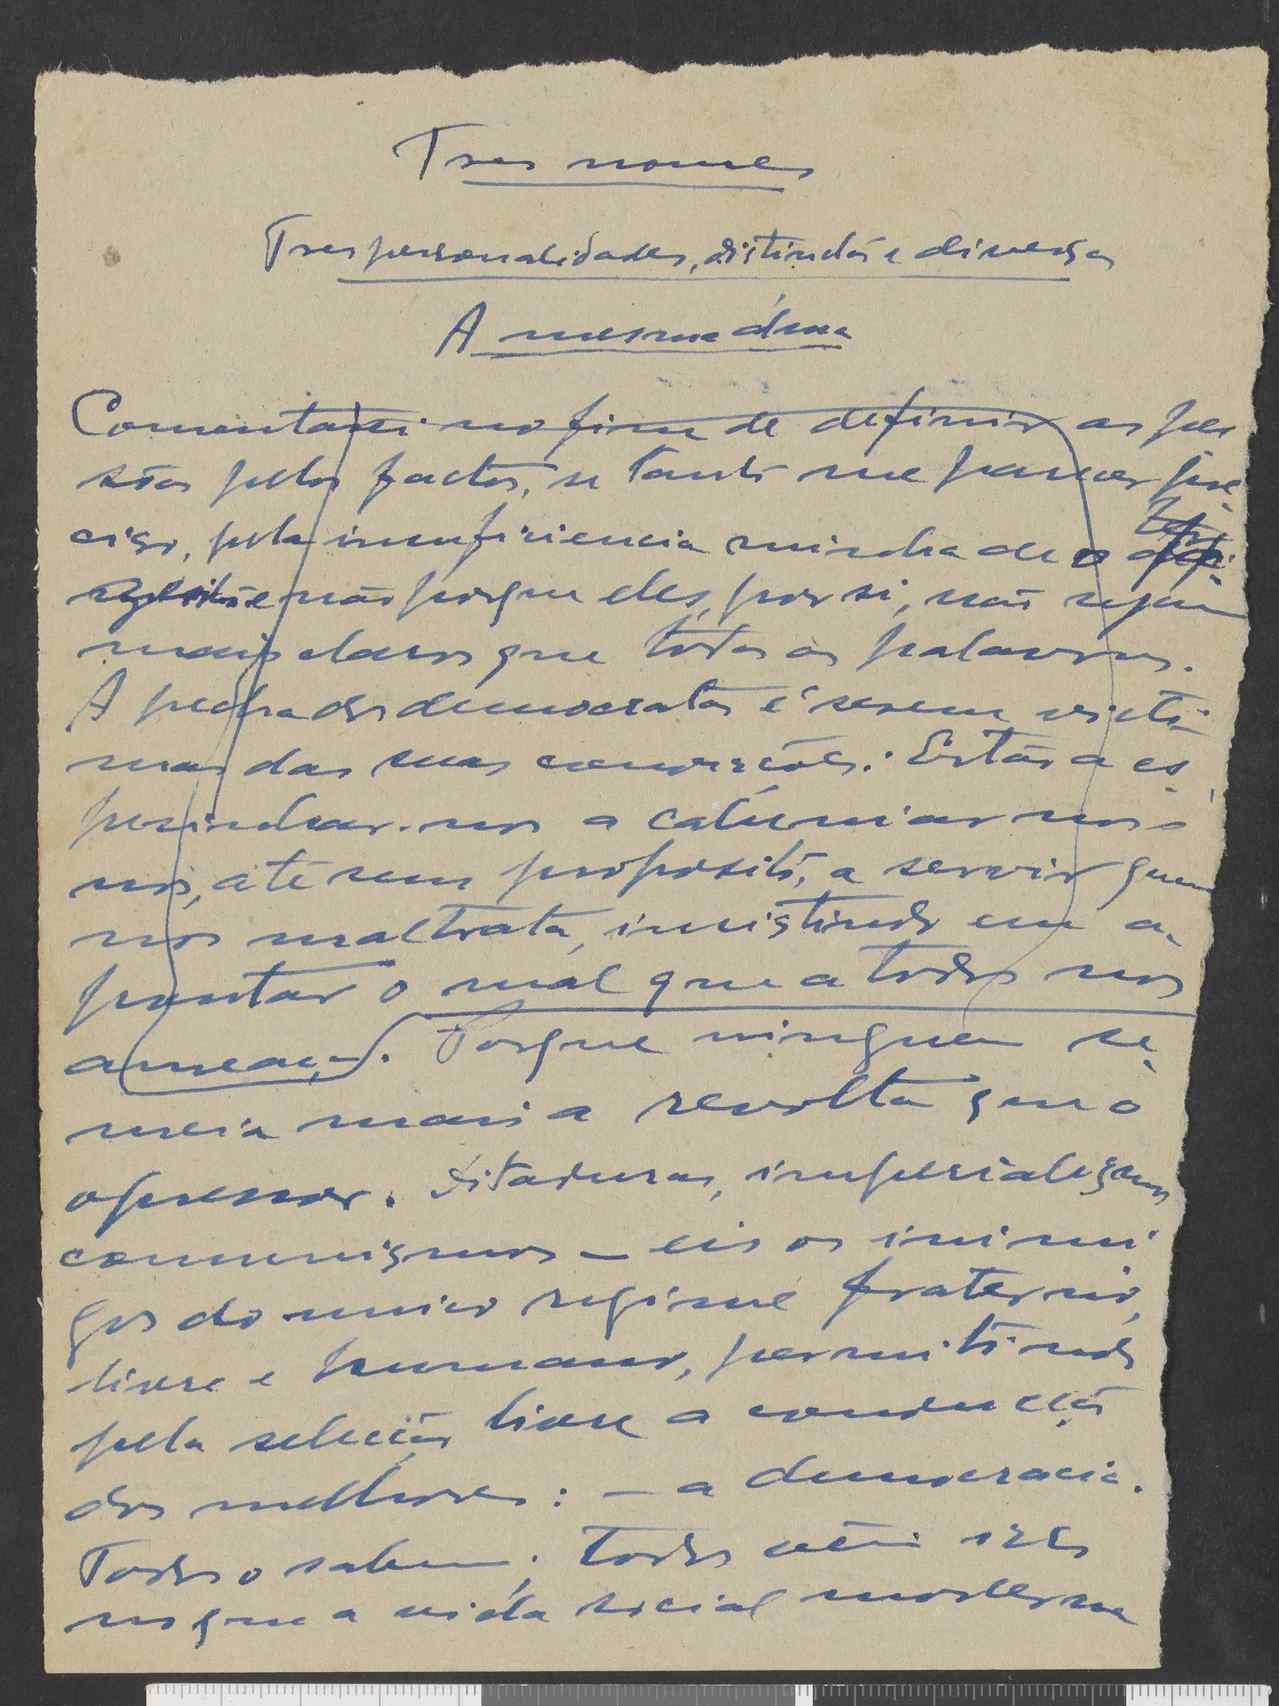 Tres nomes
Tres personalidades, distinctas e diversas
A mesma alma
Comentarei no fim de definir as pes
sôas pelos factos, se tanto me parecer pre-
ciso, pela insuficiencia minha de o
e não porque eles, por si, não sejam
mais claros que todas as palavras.
A pecha dos democratas é serem victi-
mas das suas convicções. Estão a es-
pesinhar-nos a caluniar-nos
nós, até sem proposito, a servir quem
nos maltrata, insistindo em a-
pontar o mal que a todos nos
ameaça. Porque ninguem se-
meia mais a revolta que o
opressor. Ditaduras, imperialismos
comunismos — eis os inimi
gos do unico regime fraterno,
livre e humano, permitindo
pela selecção livre a conducção
dos melhores: — a democracia.
Todos o sabem; todos vêm isto
no que a vida social moderna